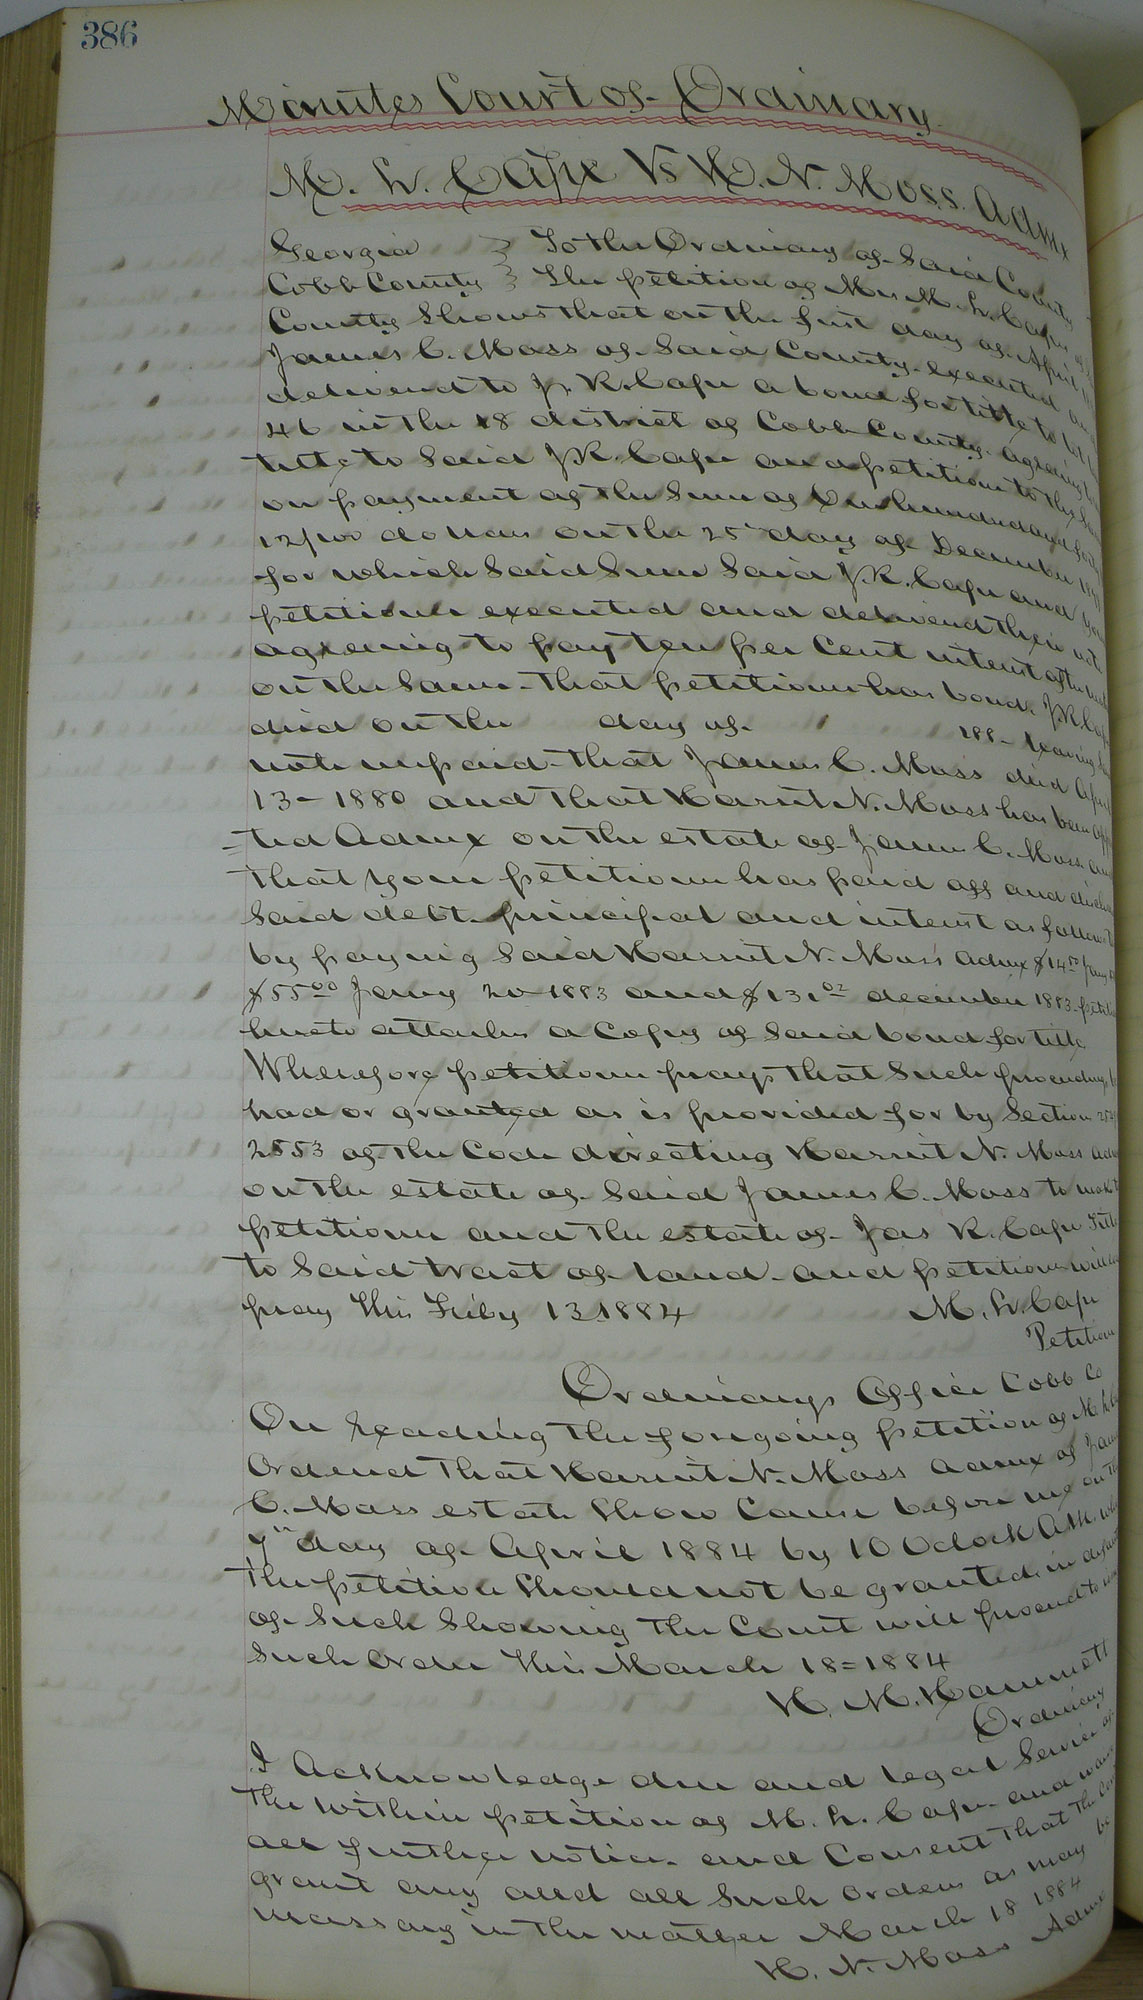 386
Minutes Court of Ordinary
M. L. Cape Vs H. N. Moss. Admx
Georgia } To the Ordinary of Said County
Cobb County } The petition of Mrs M. L. Cape of
County Shows that on the first day of April
James C. Moss of Said County executed and
delivered to J. R. Cape a bond for title to lot
46 in the 18 district of Cobb County agreeing
title to Said J R. Cape and petitioner
on payment of the Sum of One hundred and forty
12/100 dollars on the 25" day of December
for which Said Sum Said J. R. Cape and your
petitioner executed and delivered their note
agreeing to pay ten per Cent interest after
on the Same. That petitioner has bond. J. R. Cape
died on the day of 188- leaving
note unpaid. that James C. Moss died
13- 1880 and that Harriet N. Moss has been
ted Admx on the estate of James C. Moss and
that your petitioner has paid off and
Said debt principal and interest as follows
by paying Said Harriet N. Moss Admx
$55.00 Jany 20 1883 and $ december 1883
hereto attaches a Copy of Said bond for title
Wherefore petitioner prays that Such proceedings
had or granted as is provided for by Section
2553 of the Code directing Harriet N. Moss Admx
on the estate of Said James C. Moss to make
petitioner and the estate of Jas R. Cape Title
to Said tract of land and petitioner will
pray this Feby 13 1884 M. L. Cape
Petitioner
Ordinarys Office Cobb Co
On reading the foregoing petition of M. L.
Ordered that Harriet N. Moss Admx of
C. Moss estate Show Cause before me on the
7" day of April 1884 by 10 Oclock A.M. why
the petition Should not be granted in default
of Such Showing the Court will proceed to
Such Order this March 18=1884
H. M. Hammett
Ordinary
I Acknowledge due and legal Service of
the within petition of M. L. Cape and waive
all further notice and Consent that the
grant any and all Such orders as may be
necessary in the matter March 18 1884
H. N. Moss Admx